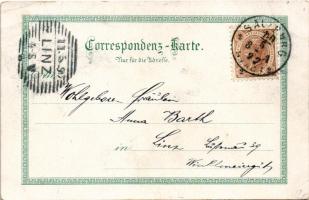 Correspondenz-Karte.
Nur für die Adresse.
SALZBURG
LINZ
Wohlgeboren Fräulein
Anna Barth
in Linz